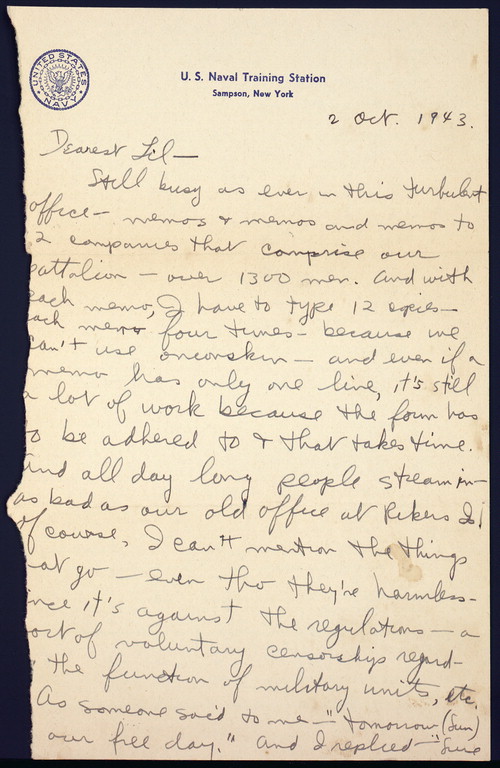 UNITED STATES NAVY
U. S. Naval Training Station
Sampson, New York
2 Oct. 1943.
Dearest Lil—
Still busy as ever in this turbulent
office— memos & memos and memos to
2 companies that comprise our
battalion — over 1300 men. And with
each memo, I have to type 12 copies—
each memo four times— because we
can't use onionskin — and even if a
memo has only one line, it's still
a lot of work because the form has
to be adhered to & that takes time.
And all day long people stream in—
as bad as our old office at Rikers Is!
Of course, I can't mention the things
at go — even tho they're harmless—
ince it's against the regulations — a
ort of voluntary censorship regard—
the function of military units, etc.
As someone said to me—"tomorrow (Sun)
our free day." And I replied—"Sure